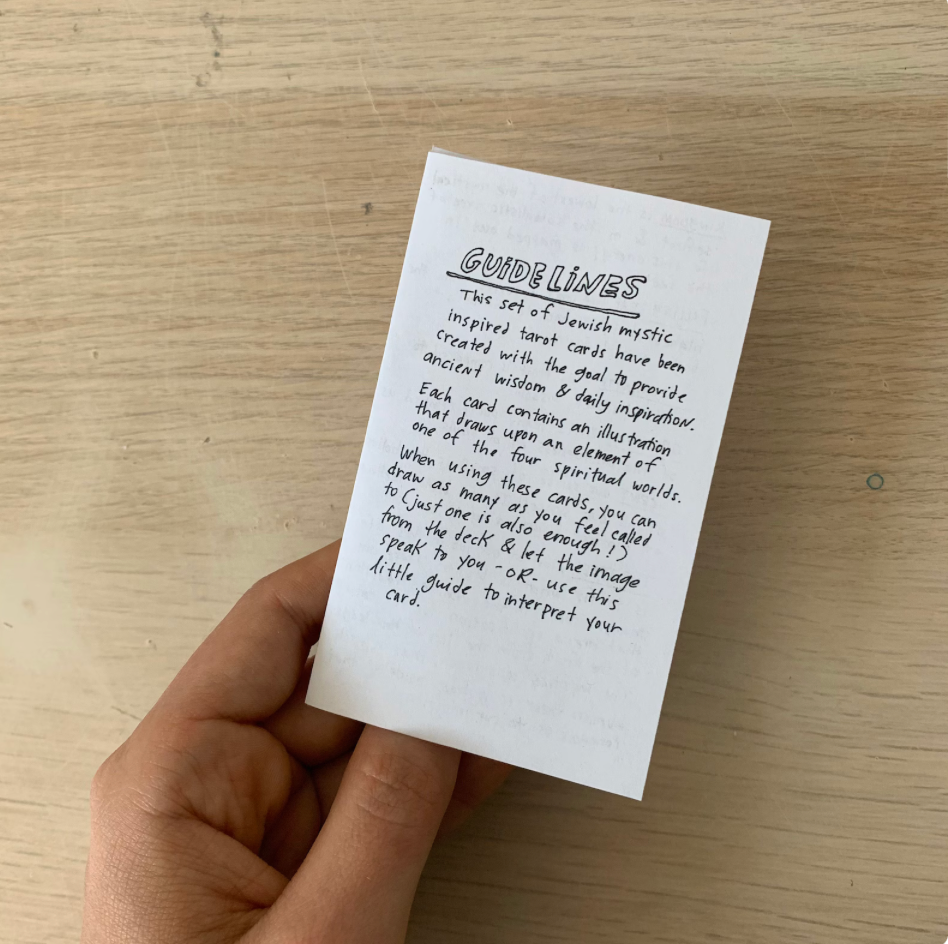 GUIDELINES
This set of Jewish mystic
inspired tarot cards have been
created with the goal to provide
ancient wisdom & daily inspiration.
Each card contains an illustration
that draws upon an element of
one of the four spiritual worlds.
When using these cards, you can
draw as many as you feel called
to (just one is also enough!)
from the deck & let the image
speak to you -OR- use this
little guide to interpret your
card.